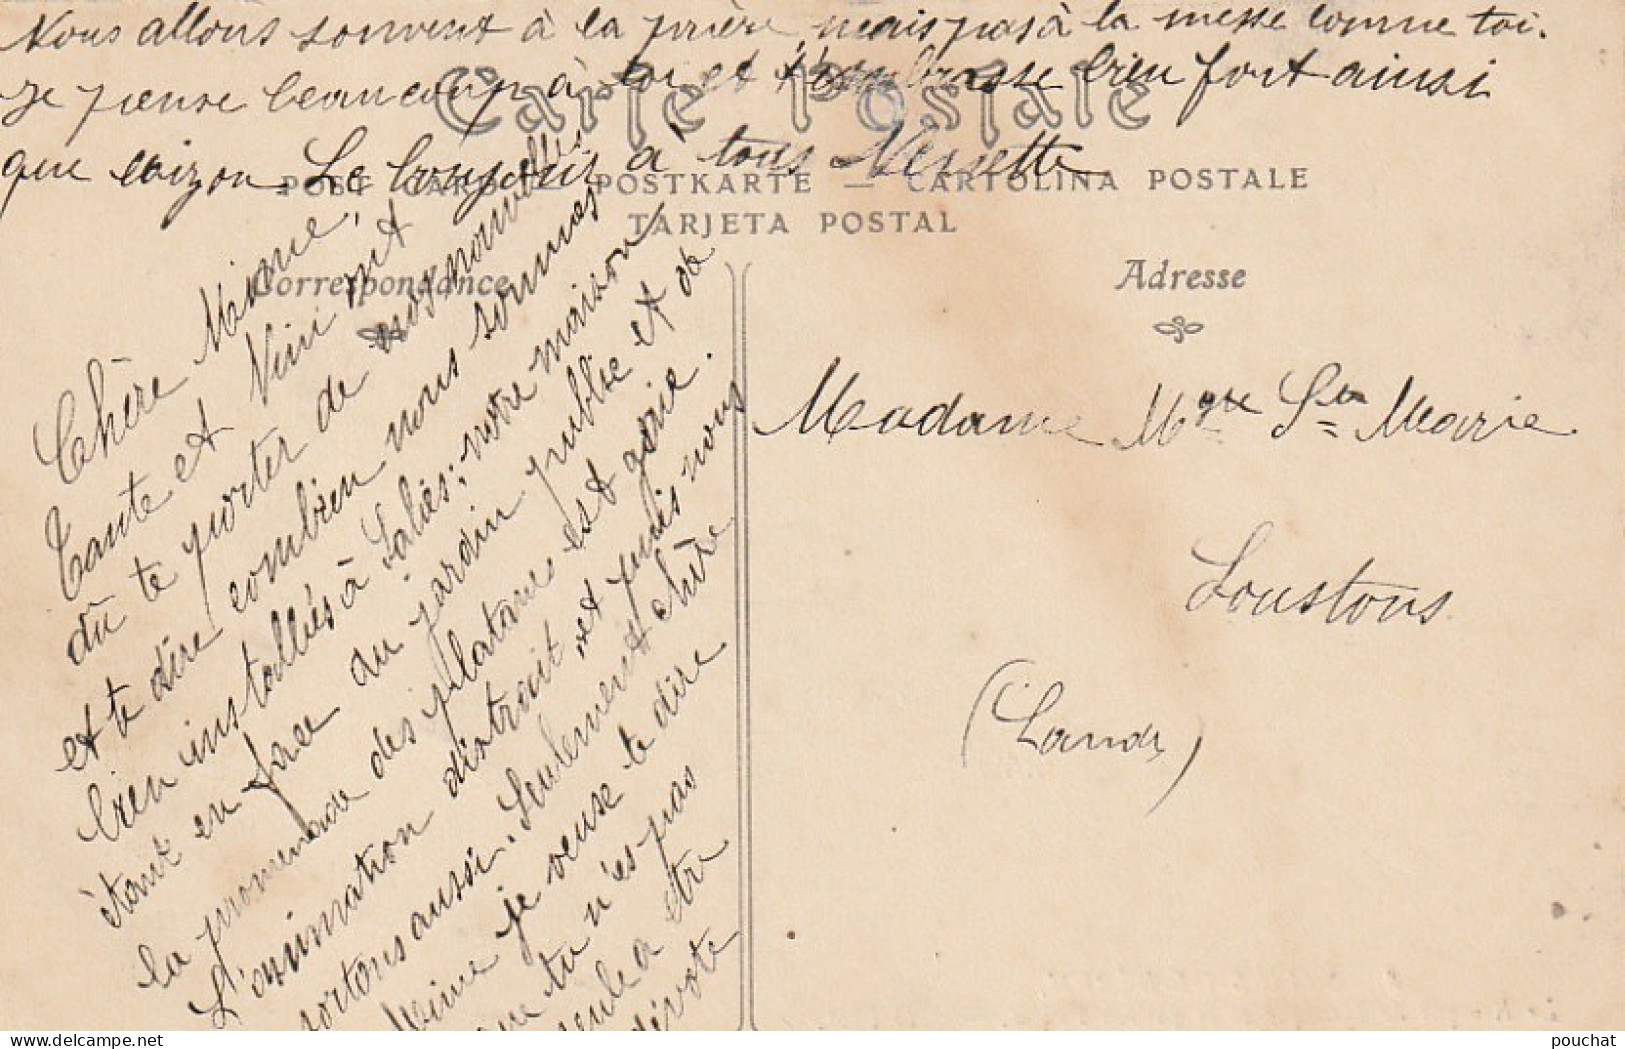 Nous allons souvent à la prière, mais pas à la messe comme toi.
Je pense beaucoup à toi et t'embrasse bien fort ainsi
que Le bonjour à tous Ninette
Carte Postale
POST CARD — POSTKARTE — CARTOLINA POSTALE
TARJETA POSTAL
Correspondance
Chère Mione,
Tante et Nini ont
dû te porter de nos nouvelles
et te dire combien nous sommes
bien installés à Salies; notre maison
étant en face du jardin public et de
la promenade des platanes est gaie.
L'animation distrait, et puis nous
sortons aussi. Seulement chère
Mione je veux te dire
que tu n'es pas
seule a etr
dévote
Adresse
Madame Mgte Ste Marie
Soustons
(Landes)
pouchat